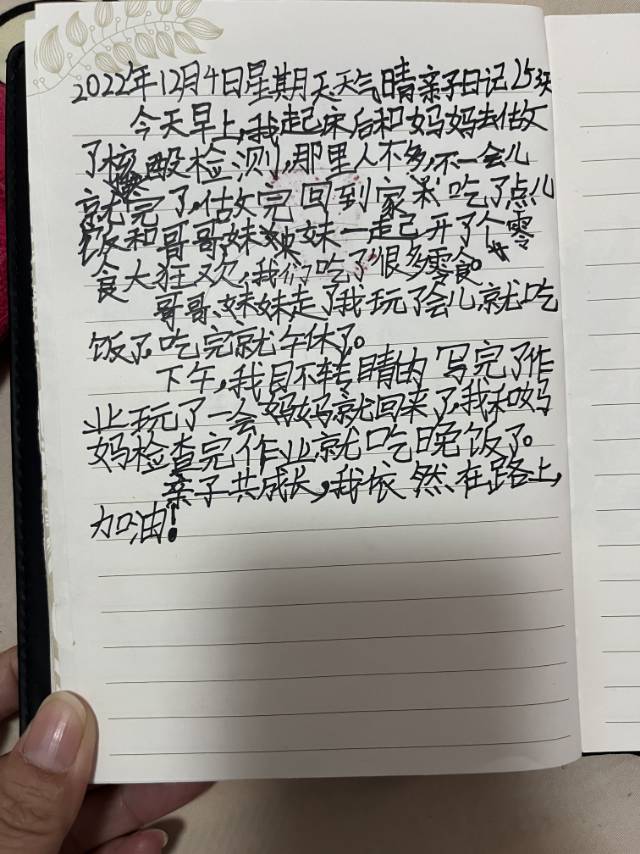 2022年12月4日星期天天气晴亲子日记253天
今天早上,我起床后和妈妈去做
了核酸检测,那里人不多,不一会儿
就完了,做完回到家我吃了点儿
饭和哥哥妹妹一起开了个零
食大狂欢,我们吃了很多零食。
哥哥、妹妹走了我玩了会儿就吃
饭了,吃完就午休了。
下午,我目不转睛的写完了作
业玩了一会妈妈就回来了,我和妈
妈检查完作业就吃晚饭了。
亲子共成长,我依然在路上,
加油!